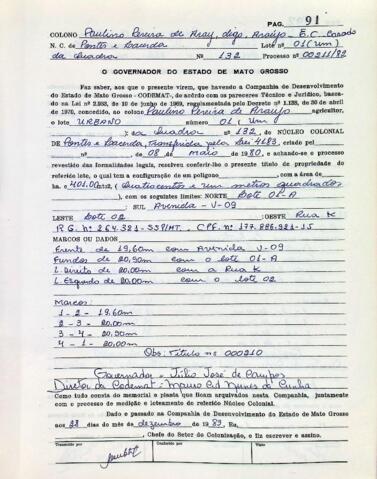 PAG. 91
COLONO Paulino Pereira de Aray, digo, Araújo - E.C. Casado
N. C. de Pontes e Lacerda Lote nº 01 (um)
da Quadra Nº 132 Processo nº 00211/82
O GOVERNADOR DO ESTADO DE MATO GROSSO
Faz saber, aos que o presente virem, que havendo a Companhia de Desenvolvimento
do Estado de Mato Grosso - CODEMAT, de acordo com os pareceres Técnico e Jurídico, baseado
na Lei nº 2.983, de 10 de junho de 1969, regulamentada pelo Decreto nº 1.138, de 30 de abril
de 1970, concedido, ao colono Paulino Pereira de Araujo agricultor,
o lote URBANO número 01 (um)
da Quadra nº 132, do NÚCLEO COLONIAL
DE Pontes e Lacerda, Transferida pela Lei 4183, criado pel
nº de 08 de maio de 1980, e achando-se o processo
revestido das formalidades legais, resolveu conferir-lhe o presente título de propriedade do
referido lote, o qual tem a configuração de um polígono com a área de
ha. 401.00m², (Quatrocentos e um metros quadrados
), com os seguintes limites: NORTE Lote 01-A
: SUL Avenida - V-09
LESTE Lote 02 : OESTE Rua K
R.G. nº 264.321-SSP/MT. CPF. nº 177.886.921-15
MARCOS OU DADOS
Frente de 19,60m com Avenida V-09
Fundos de 20,50m com o lote 01-A
L. Direito de 20,00m com a Rua K
L. Esquerdo de 20,00m com o lote 02
Marcos:
1 - 2 - 19,60m
2 - 3 - 20,00m
3 - 4 - 20,50m
4 - 1 - 20,00m
Obs: Título nº 000210
Governador - Júlio José de Campos
Diretor da Codemat - Mauro Cid Nunes da Cunha
Como tudo consta do memorial e planta que ficam arquivados nesta Companhia, juntamente
com o processo de medição e loteamento do referido Núcleo Colonial.
Dado e passado na Companhia de Desenvolvimento do Estado de Mato Grosso
aos 28 dias do mês de dezembro de 1983, Eu,
, Chefe do Setor de Colonização, o fiz escrever e assino.
Transcrito por Conferido por Visto